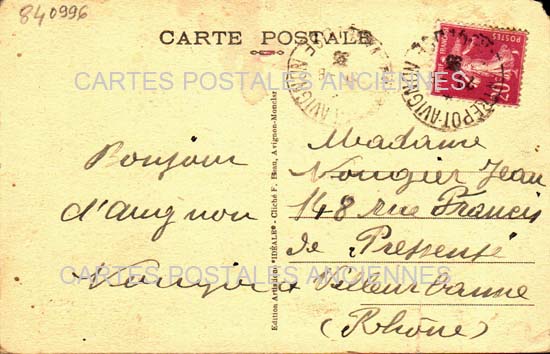 840996
CARTE POSTALE
CARTES POSTALES ANCIENNES
Bonjour
d'Avignon
Nougier
Edition Artistique "IDÉALE" - Cliché F. Beau, Avignon-Monclar
Madame
Nougier Jean
148 rue Francis
de Pressensé
à Villeurbanne
(Rhône)
CARTES POSTALES ANCIENNES
POSTES
ENTREPOT AVIGNON